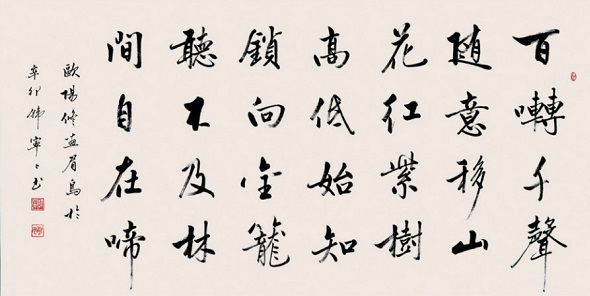 百囀千聲
随意移山
花红紫樹
高低始知
鎖向金籠
聽不及林
間自在啼
歐陽修画眉鳥於
辛卯 寧〻书